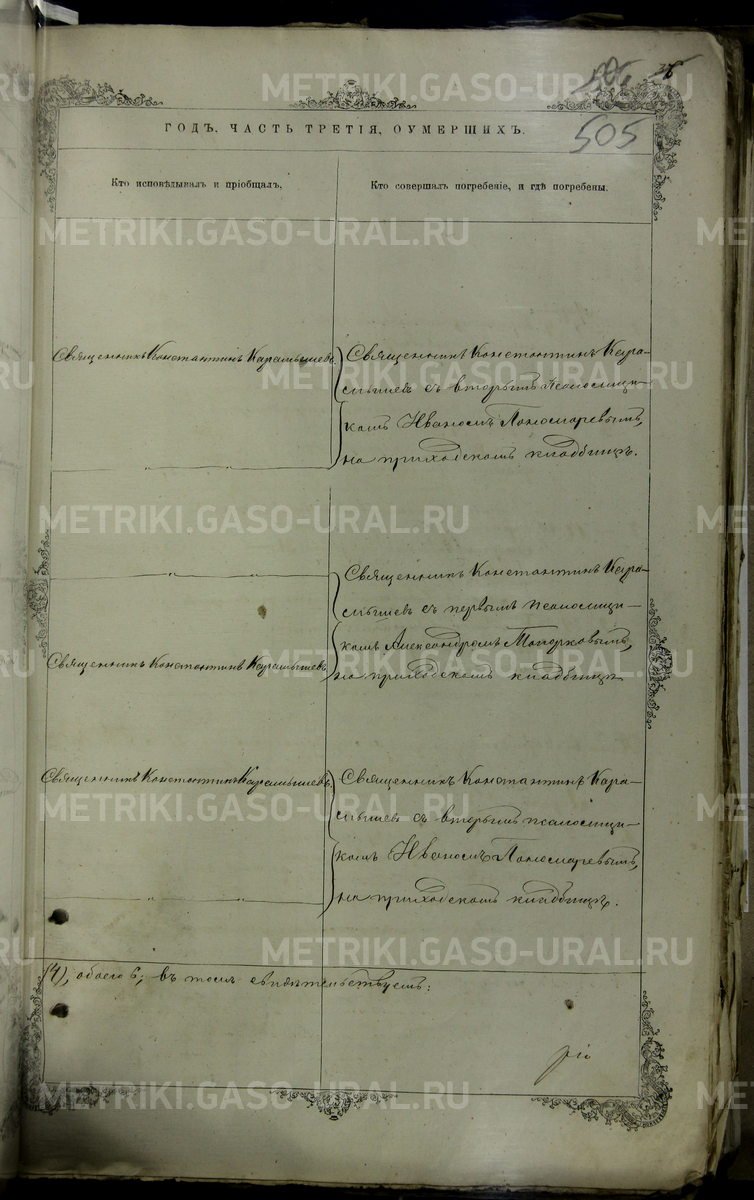 505
ГОДЪ, ЧАСТЬ ТРЕТІЯ, ОУМЕРШИХЪ.
505
Кто исповѣдывалъ и пріобщалъ.
Кто совершалъ погребеніе, и гдѣ погребены.
Священникъ Константинъ Карамышевъ
Священникъ Константинъ Кара-
мышевъ съ вторымъ псаломщи-
комъ Иваномъ Пономаревымъ,
на приходскомъ кладбищѣ.
Священникъ Константинъ Кара-
мышевъ съ первымъ псаломщи-
комъ Александромъ Топорковымъ,
на приходскомъ кладбищѣ
Священникъ Константинъ Карамышевъ
Священникъ Константинъ Карамышевъ
Священникъ Константинъ Кара-
мышевъ съ вторымъ псаломщи-
комъ Иваномъ Пономаревымъ,
на приходскомъ кладбищѣ.
(4), обоего 6; въ томъ свидѣтельствуемъ:
METRIKI.GASO-URAL.RU